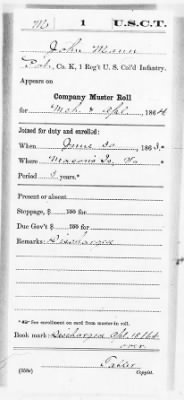 M | 1 | U.S.C.T.
John Mann
Pvt., Co. K, 1 Reg't U. S. Col'd Infantry.
Appears on
Company Muster Roll
for Mch & Apl., 1864
Joined for duty and enrolled:
When June 30, 1863.*
Where Mason's Is, Va
Period 3 years.*
Present or absent
Stoppage, $ 100 for
Due Gov't $ 100 for
Remarks: Discharged
*See enrollment on card from muster-in roll.
Book mark: Discharged Apl. 18 1864
over
(358c) Copyist.